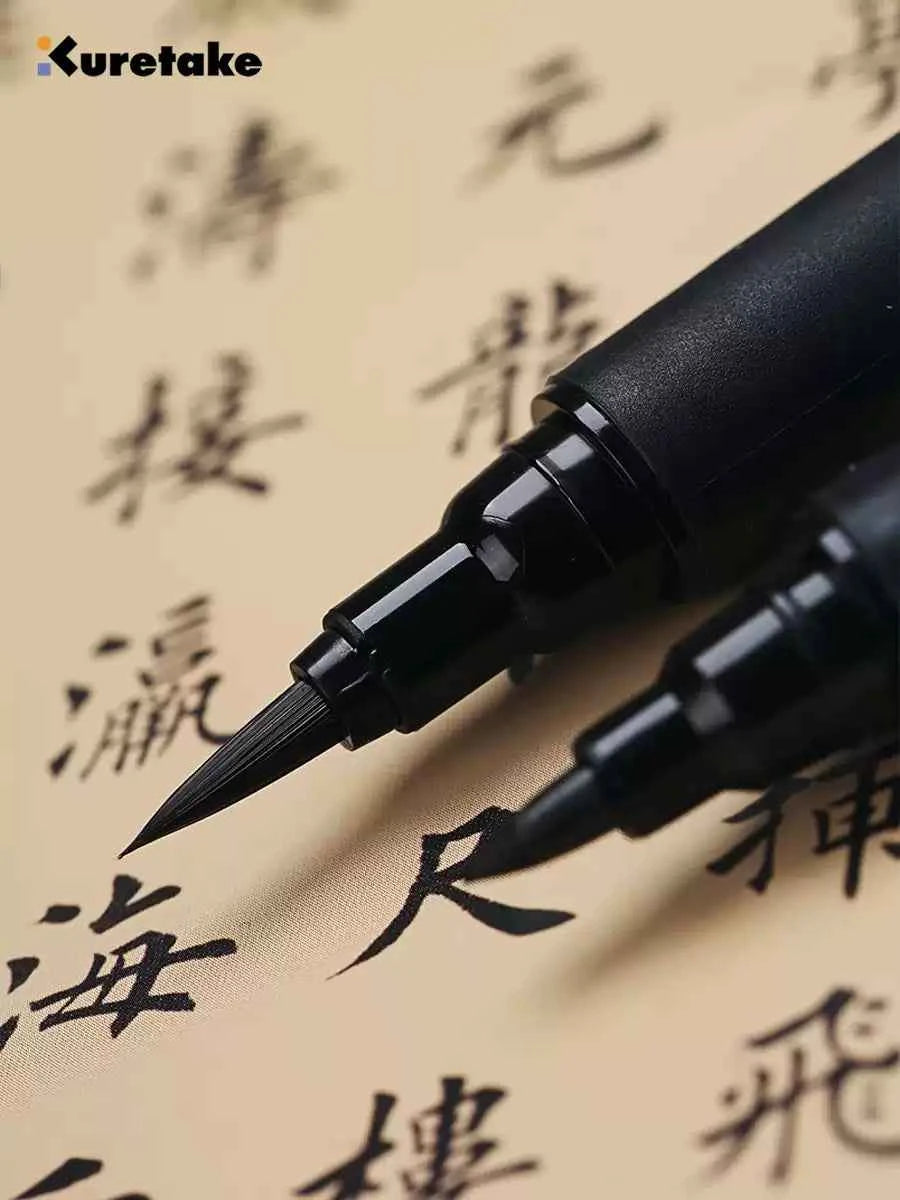 Kuretake
揮飛
元龍尺樓
接瀛海